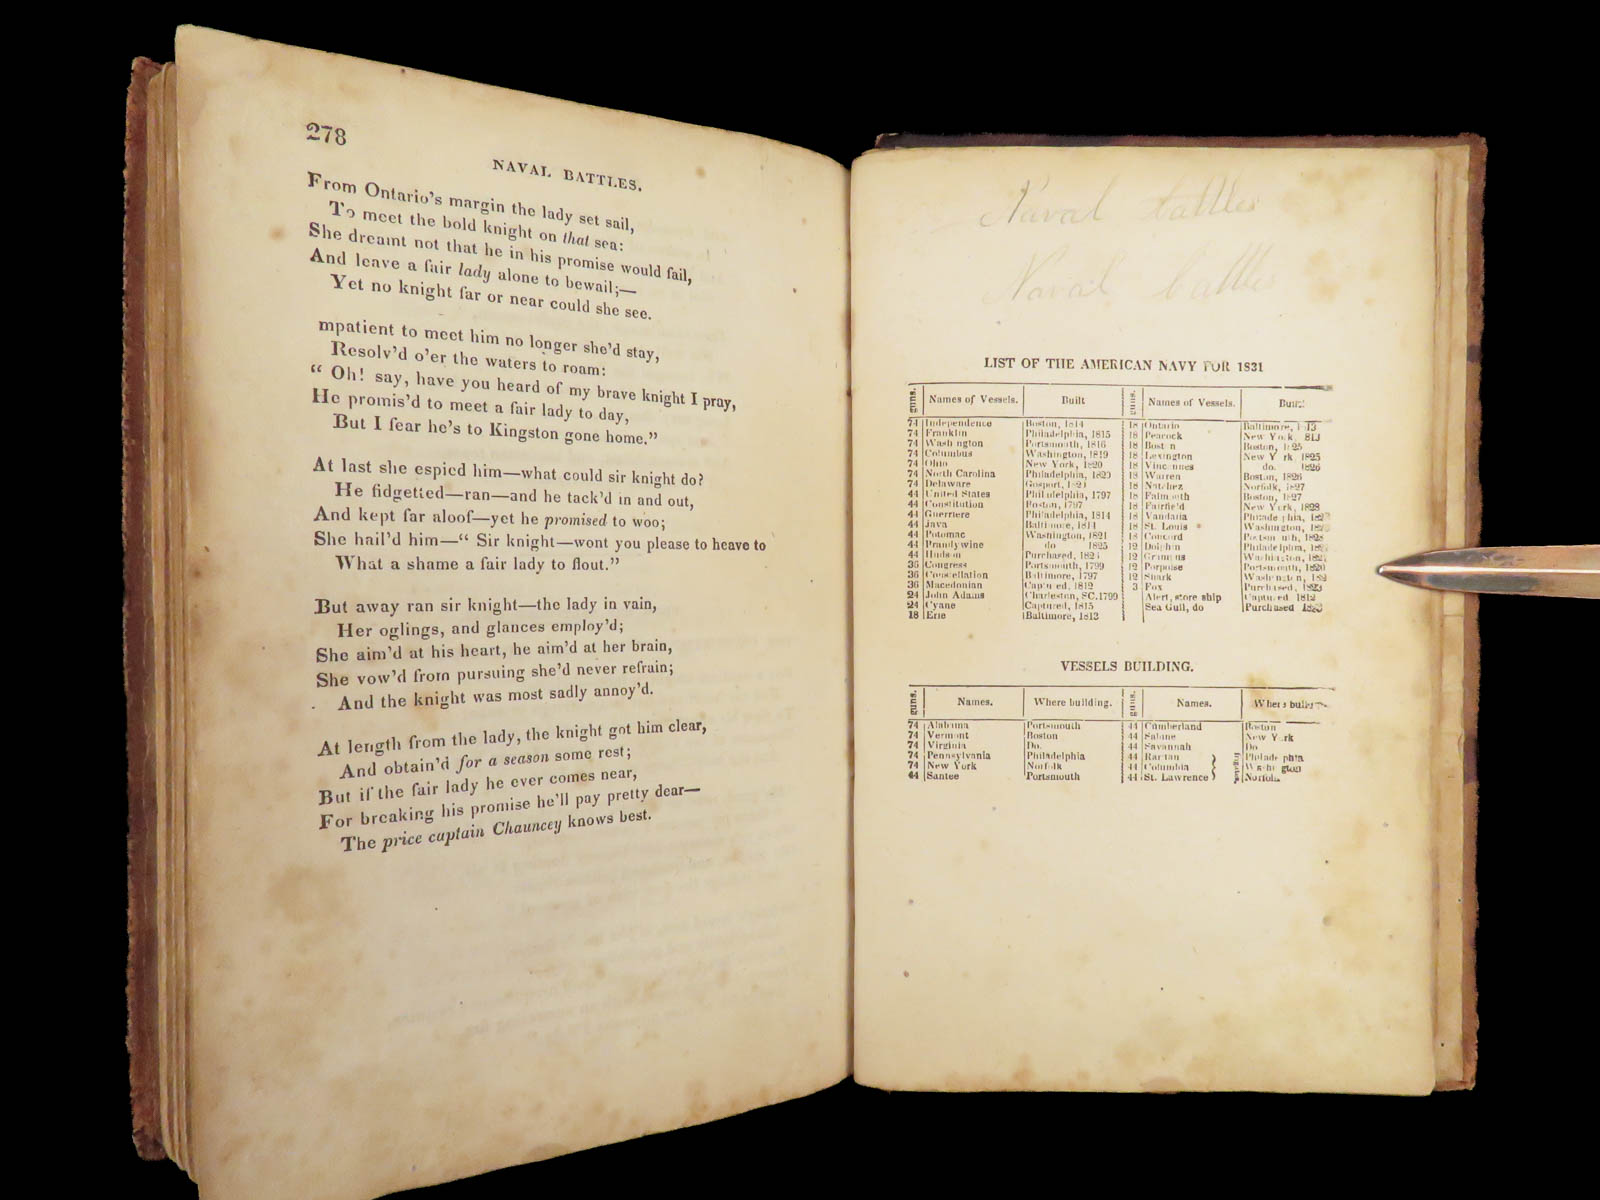 278
NAVAL BATTLES.
From Ontario's margin the lady set sail,
To meet the bold knight on that sea:
She dreamt not that he in his promise would fail,
And leave a fair lady alone to bewail;—
Yet no knight far or near could she see.
mpatient to meet him no longer she'd stay,
Resolv'd o'er the waters to roam:
“ Oh! say, have you heard of my brave knight I pray,
He promis'd to meet a fair lady to day,
But I fear he's to Kingston gone home.”
At last she espied him—what could sir knight do?
He fidgetted—ran—and he tack'd in and out,
And kept far aloof—yet he promised to woo;
She hail'd him—“ Sir knight—wont you please to heave to
What a shame a fair lady to flout.”
But away ran sir knight—the lady in vain,
Her oglings, and glances employ'd;
She aim'd at his heart, he aim'd at her brain,
She vow'd from pursuing she'd never refrain;
And the knight was most sadly annoy'd.
At length from the lady, the knight got him clear,
And obtain'd for a season some rest;
But if the fair lady he ever comes near,
For breaking his promise he'll pay pretty dear—
The price captain Chauncey knows best.
Naval battles
Naval battles
LIST OF THE AMERICAN NAVY FOR 1831
guns. Names of Vessels. Built guns. Names of Vessels. Built
74 Independence Boston, 1814 18 Ontario Baltimore, 1813
74 Franklin Philadelphia, 1815 18 Peacock New York, 813
74 Wash ngton Portsmouth, 1816 18 Bost n Boston, 1825
74 Columbus Washington, 1819 18 Lexington New Y rk, 1825
74 Ohio New York, 1820 18 Vincennes do. 1826
74 North Carolina Philadelphia, 1820 18 Warren Boston, 1826
74 Delaware Gosport, 18 18 Natchez Norfolk, 1827
44 United States Philadelphia, 1797 18 Falmouth Boston, 1827
44 Constitution Boston, 1797 18 Fairfield New York, 1828
44 Guerriere Philadelphia, 1814 18 Vandalia Philade phia, 182
44 Java Baltimore, 1814 18 St. Louis Washington, 182
44 Potomac Washington, 1821 18 Concord Portsmouth, 1828
44 Brandywine do 1825 12 Dolphin Philadelphia, 182
44 Hudson Purchased, 182 12 Grampus Washington, 182
36 Congress Portsmouth, 1799 12 Porpoise Portsmouth, 1820
36 Constellation Baltimore, 1797 12 Shark Washington, 182
36 Macedonian Captured, 1812 3 Fox Purchased, 1823
24 John Adams Charleston, SC. 1799 Alert, store ship Captured 1812
24 Cyane Captured, 1815 Sea Gull, do Purchased 1823
18 Erie Baltimore, 1813
VESSELS BUILDING.
guns. Names. Where building. guns. Names. Where
74 Alabama Portsmouth 44 Cumberland Boston
74 Vermont Boston 44 Sabine New Y rk
74 Virginia Do. 44 Savannah Do
74 Pennsylvania Philadelphia 44 Raritan Philade phia
74 New York Norfolk 44 Columbia Washi gton
44 Santee Portsmouth 44 St. Lawrence Norfolk